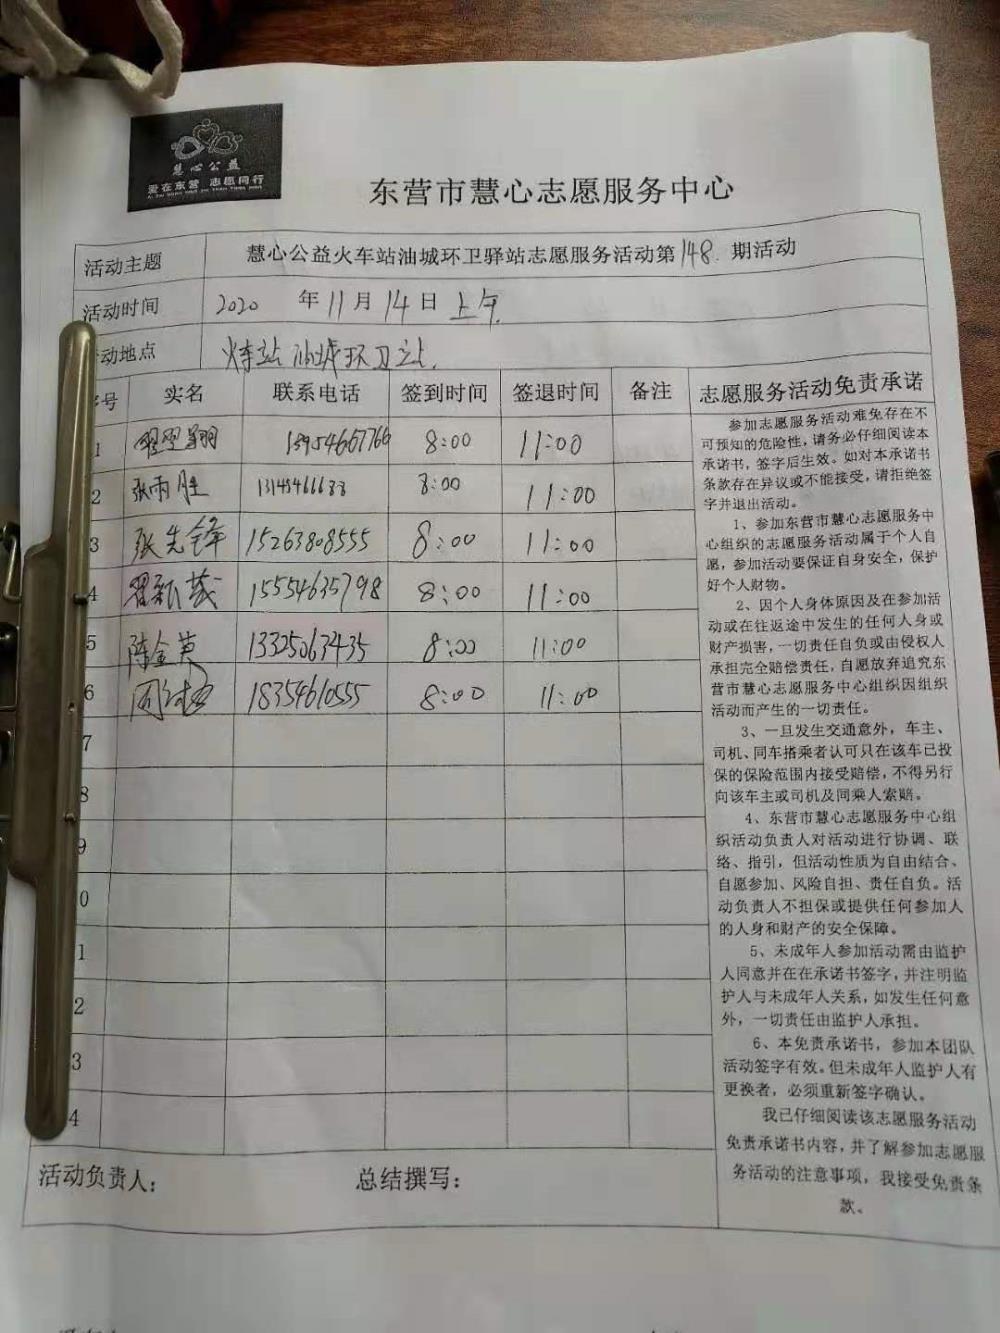 慧心公益
爱在东营 志愿同行
东营市慧心志愿服务中心
活动主题 慧心公益火车站油城环卫驿站志愿服务活动第148.期活动
活动时间 2020 年11月14日上午.
动地点 火车站油城环卫站.
号 实名 联系电话 签到时间 签退时间 备注
1 8:00 11:00
2 张雨胜 8:00 11:00
3 张先锋 15263808555 8:00 11:00
4 15554635798 8:00 11:00
5 陈金英 13325063435 8:00 11:00
6 18354610555 8:00 11:00
7
8
9
0
1
2
3
4
活动负责人: 总结撰写:
志愿服务活动免责承诺
参加志愿服务活动难免存在不
可预知的危险性,请务必仔细阅读本
承诺书,签字后生效。如对本承诺书
条款存在异议或不能接受,请拒绝签
字并退出活动。
1、参加东营市慧心志愿服务中
心组织的志愿服务活动属于个人自
愿,参加活动要保证自身安全,保护
好个人财物。
2、因个人身体原因及在参加活
动或在往返途中发生的任何人身或
财产损害,一切责任自负或由侵权人
承担完全赔偿责任,自愿放弃追究东
营市慧心志愿服务中心组织因组织
活动而产生的一切责任。
3、一旦发生交通意外,车主、
司机、同车搭乘者认可只在该车已投
保的保险范围内接受赔偿,不得另行
向该车主或司机及同乘人索赔。
4、东营市慧心志愿服务中心组
织活动负责人对活动进行协调、联
络、指引,但活动性质为自由结合、
自愿参加、风险自担、责任自负。活
动负责人不担保或提供任何参加人
的人身和财产的安全保障。
5、未成年人参加活动需由监护
人同意并在在承诺书签字,并注明监
护人与未成年人关系,如发生任何意
外,一切责任由监护人承担。
6、本免责承诺书,参加本团队
活动签字有效。但未成年人监护人有
更换者,必须重新签字确认。
我已仔细阅读该志愿服务活动
免责承诺书内容,并了解参加志愿服
务活动的注意事项,我接受免责条
款。